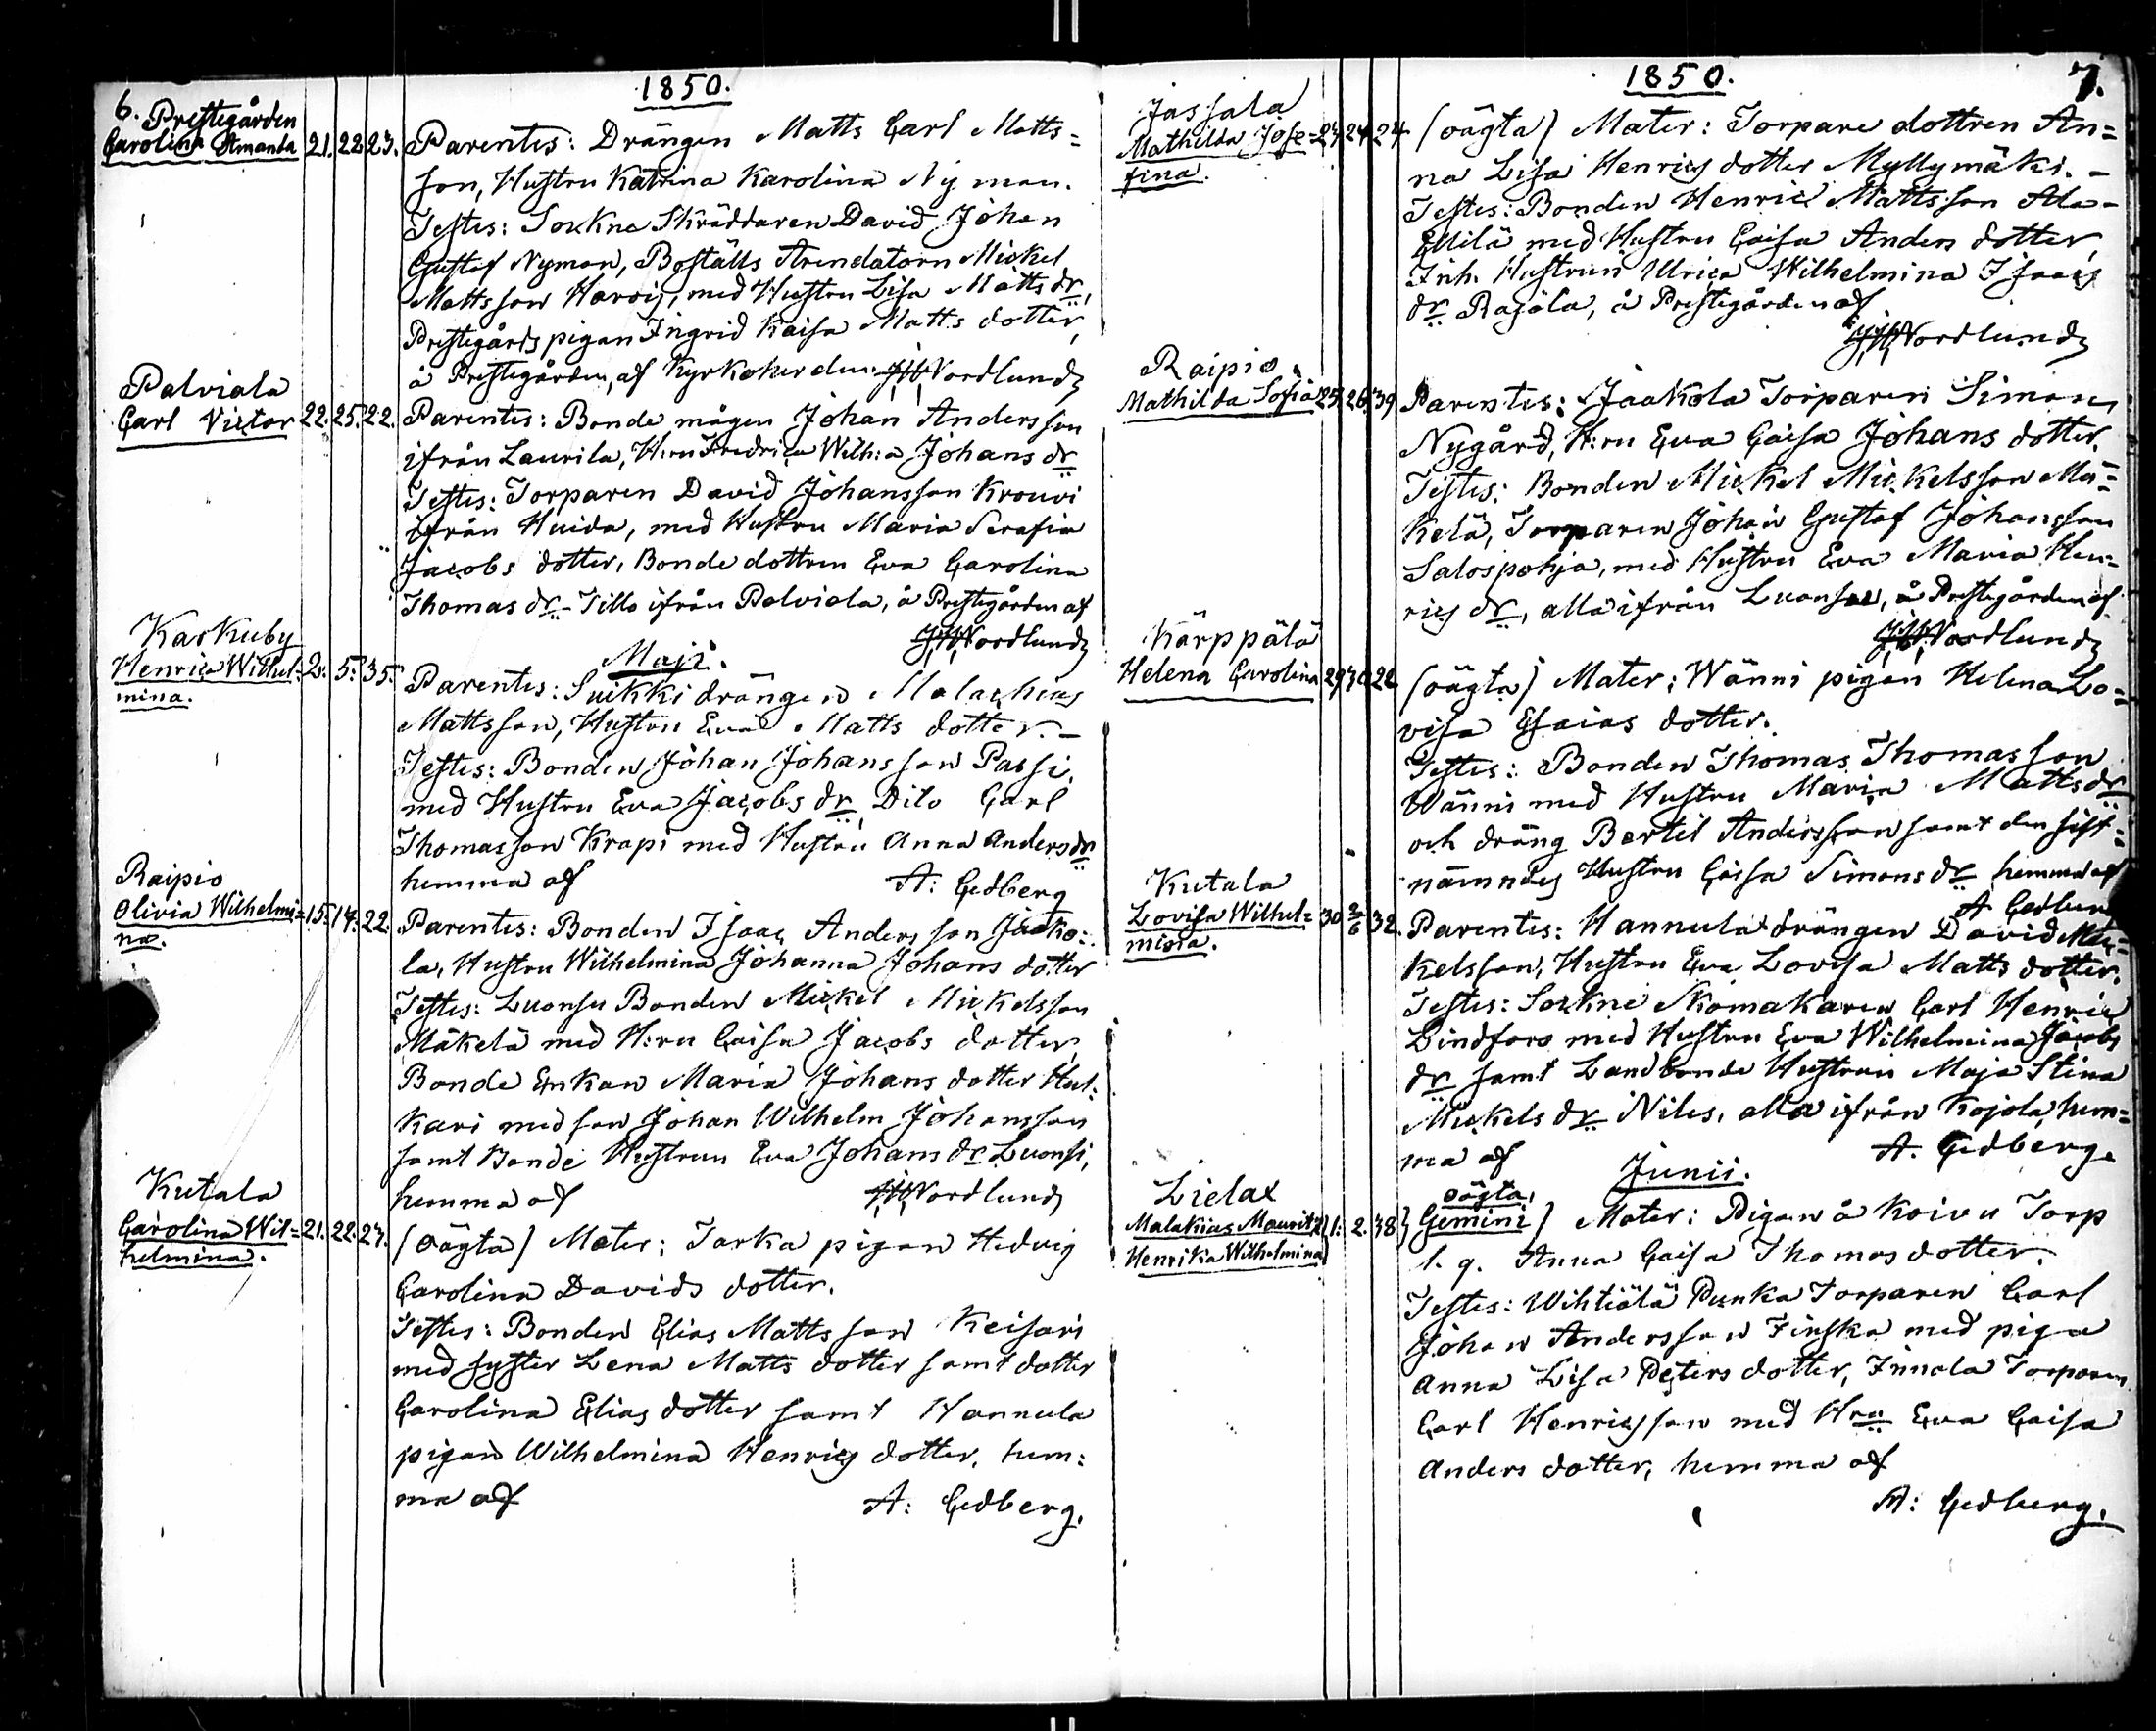 6.
1850.
Prestegården
Carolina Amanda 21. 22. 23. Parentes: Drängen Matts Carl Matts=
son, Hustru Katrina Karolina Nyman.
Testes: Sockne Skräddaren David Johan
Gustaf Nyman, Boställs Arendatorn Mickel
Mattsson Harvij, med Hustru Lisa Matts dr,
Prestegårds pigan Ingrid Kaisa Matts dotter,
å Prestegården, af Kyrkoherden Nordlund
Palviala
Carl Victor 22. 25. 22. Parentes: Bonde mågen Johan Andersson
ifrån Laurila, H:ru Fredrica Wilh:a Johans dr
Testes: Torparen David Johansson Krouvi
ifrån Huida, med Hustru Maria Serafia
Jacobs dotter, Bonde dottren Eva Carolina
Thomas dr Tillo ifrån Palviala, å Prestegården af
Nordlund
Maji.
Karkuby
Henrica Wilhel= 2. 5. 35. Parentes: Suikki drängen Malachias
mina. Mattsson, Hustru Eva Matts dotter. –
Testes: Bonden Johan Johansson Passi,
med Hustru Eva Jacobs dr, Dito Carl
Thomasson Krapi med Hustru Anna Anders dr
hemma af A: Cedberg
Raipio
Olivia Wilhelmi= 15. 17. 22. Parentes: Bonden Isaac Andersson Jaako=
na. la, Hustru Wilhelmina Johanna Johans dotter
Testes: Luonsu Bonden Mickel Mickelsson
Mäkelä med H:ru Caisa Jacobs dotter,
Bonde Enkan Maria Johans dotter Hul=
kari med son Johan Wilhelm Johansson
samt Bonde Hustrun Eva Johans dr Luonsi,
hemma af Nordlund
Kutala
Carolina Wil= 21. 22. 27. (Oägta) Mater: Tarka pigan Hedvig
helmina. Carolina Davids dotter.
Testes: Bonden Elias Mattsson Keisari
med syster Lena Matts dotter samt dotter
Carolina Elias dotter samt Hannula
pigan Wilhelmina Henrics dotter, hem=
ma af A: Cedberg.
1850.
7.
Jassala
Mathilda Jose= 24 24 24 (oägta) Mater: Torpare dottren An=
fina. na Lisa Henrics dotter Myllymäki. –
Testes: Bonden Henric Mattsson Ala=
Ellilä med Hustru Caisa Anders dotter,
Inh. Hustrun Ulrica Wilhelmina Isaacs
dr Rajala, å Prestegården af
Nordlund
Raipio
Mathilda Sofia 25. 26. 39. Parentes: Jaakola Torparen Simon
Nygård, H:ru Eva Caisa Johans dotter.
Testes: Bonden Mickel Mickelsson Mä=
kelä, Torparen Johan Gustaf Johansson
Salospohja, med Hustru Eva Maria Hen=
rics dr, alla ifrån Luonsu, å Prestegården af
Nordlund
Kärppälä
Helena Carolina 29 30 22 (oägta) Mater: Wänni pigan Helena Lo=
visa Esaias dotter.
Testes: Bonden Thomas Thomasson
Wänni med Hustru Maria Matts dr
och dräng Bertil Andersson samt den sist=
nämndes Hustru Caisa Simons dr hemma af
A Cedberg
Kutala
Lovisa Wilhel= 30 2/6 32. Parentes: Hannula drängen David Mic=
mina. kelsson, Hustru Eva Lovisa Matts dotter.
Testes: Sockne Skomakaren Carl Henric
Lindfors med Hustru Eva Wilhelmina Jacobs
dr samt Landbonde Hustrun Maja Stina
Mickels dr Niles, alla ifrån Kojola, hem=
ma af A. Cedberg.
Junii.
Lielax
oägta,
Malakias Mauritz 1. 2. 38 Gemini) Mater: Pigan å Koivu Torp
Henrika Wilhelmina l. q. Anna Caisa Thomas dotter.
Testes: Wihtiälä Punka Torparen Carl
Johan Andersson Finska med piga
Anna Lisa Peters dotter, Innala Torparen
Carl Henricsson med Hru Eva Caisa
Anders dotter, hemma af
A: Cedberg.